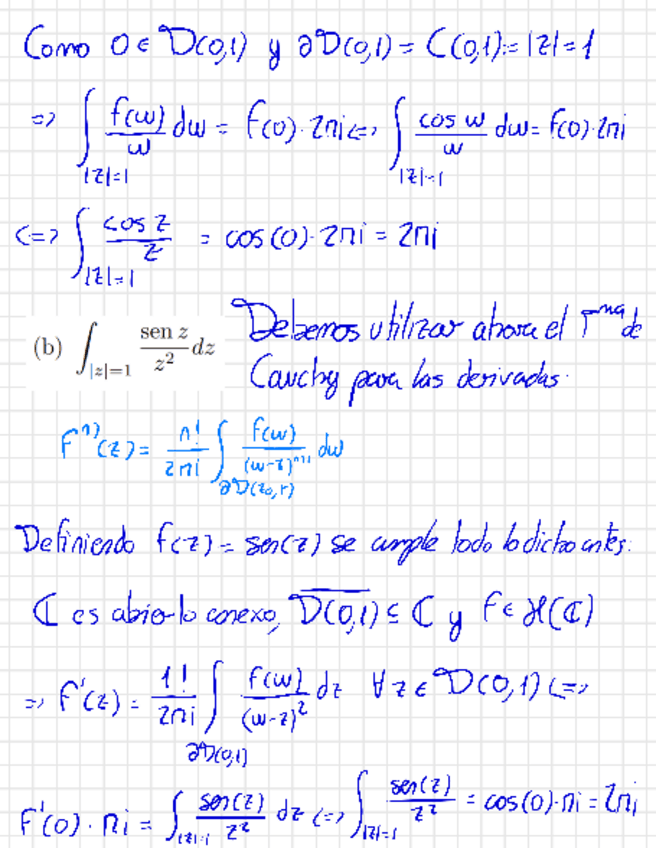 Como 0 ∈ D(0,1) y ∂D(0,1) = C(0,1) := |z| = 1
=> ∫_{|z|=1} f(w)/w dw = f(0)·2πi <=> ∫_{|z|=1} cos w/w dw = f(0)·2πi
<=> ∫_{|z|=1} cos z/z = cos(0)·2πi = 2πi
(b) ∫_{|z|=1} sen z/z² dz Debemos utilizar ahora el Tᵐᵃ de
Cauchy para las derivadas.
f^{n)}(z) = n!/2πi ∫_{∂D(z₀,r)} f(w)/(w-z)^{n+1} dw
Definiendo f(z) = sen(z) se cumple todo lo dicho antes.
ℂ es abierto conexo, \overline{D(0,1)} ⊆ ℂ y f ∈ H(ℂ)
=> f'(z) = 1!/2πi ∫_{∂D(0,1)} f(w)/(w-z)² dz ∀z ∈ D(0,1) <=>
f'(0)·πi = ∫_{|z|=1} sen(z)/z² dz <=> ∫_{|z|=1} sen(z)/z² = cos(0)·πi = 2πi